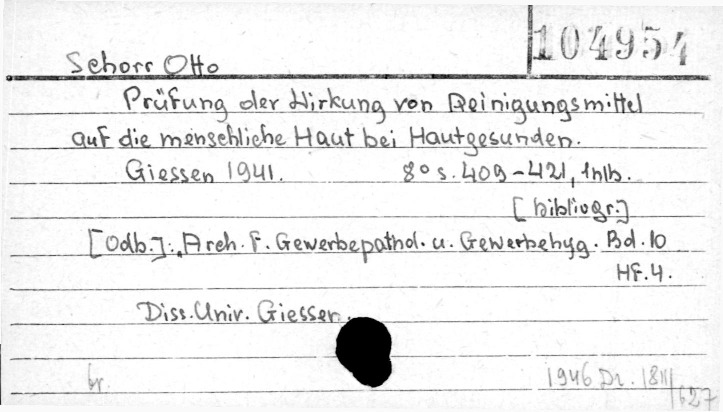 104954
Schorr Otto
Prüfung der Wirkung von Reinigungsmittel
auf die menschliche Haut bei Hautgesunden.
Giessen 1941. 8° s. 409-421, 1 nlb.
[bibliogr.]
[Odb.]: Arch. f. Gewerbepathol. u. Gewerbehyg. Bd. 10
Hf. 4.
Diss. Univ. Giessen.
br. 1946 Dr. 18
627